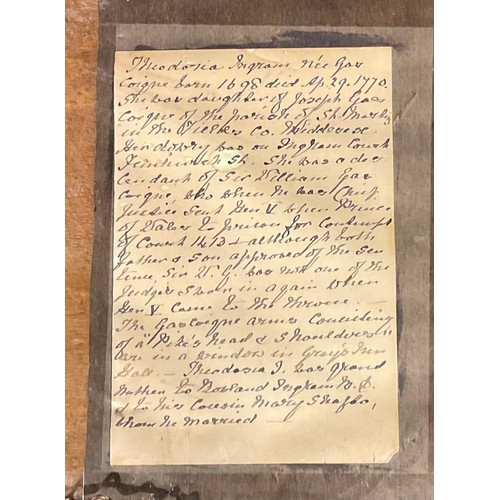 Theodosia Ingram née Gas
coigne born 1698 died Ap. 29. 1770.
She was daughter of Joseph Gas
coigne of the parish of St. Martin
in the Fields Co. Middlesex
Her dowry was on Ingram Court
Fenchurch St. She was a des
cendant of Sir William Gas
coigne, who when he was Chief
Justice sent Hen V when Prince
of Wales to prison for contempt
of Court 1413 & although both
father & son approved of the sen
tence Sir W. G. was not one of the
Judges sworn in again when
Hen V came to the throne. —
The Gascoigne arms consisting
of a "Pike's head & Shoulders"
are in a window in Gray's Inn
Hall. — Theodosia I. was grand
mother to Rowland Ingram B.D.
& to his Cousin Mary
whom he married —